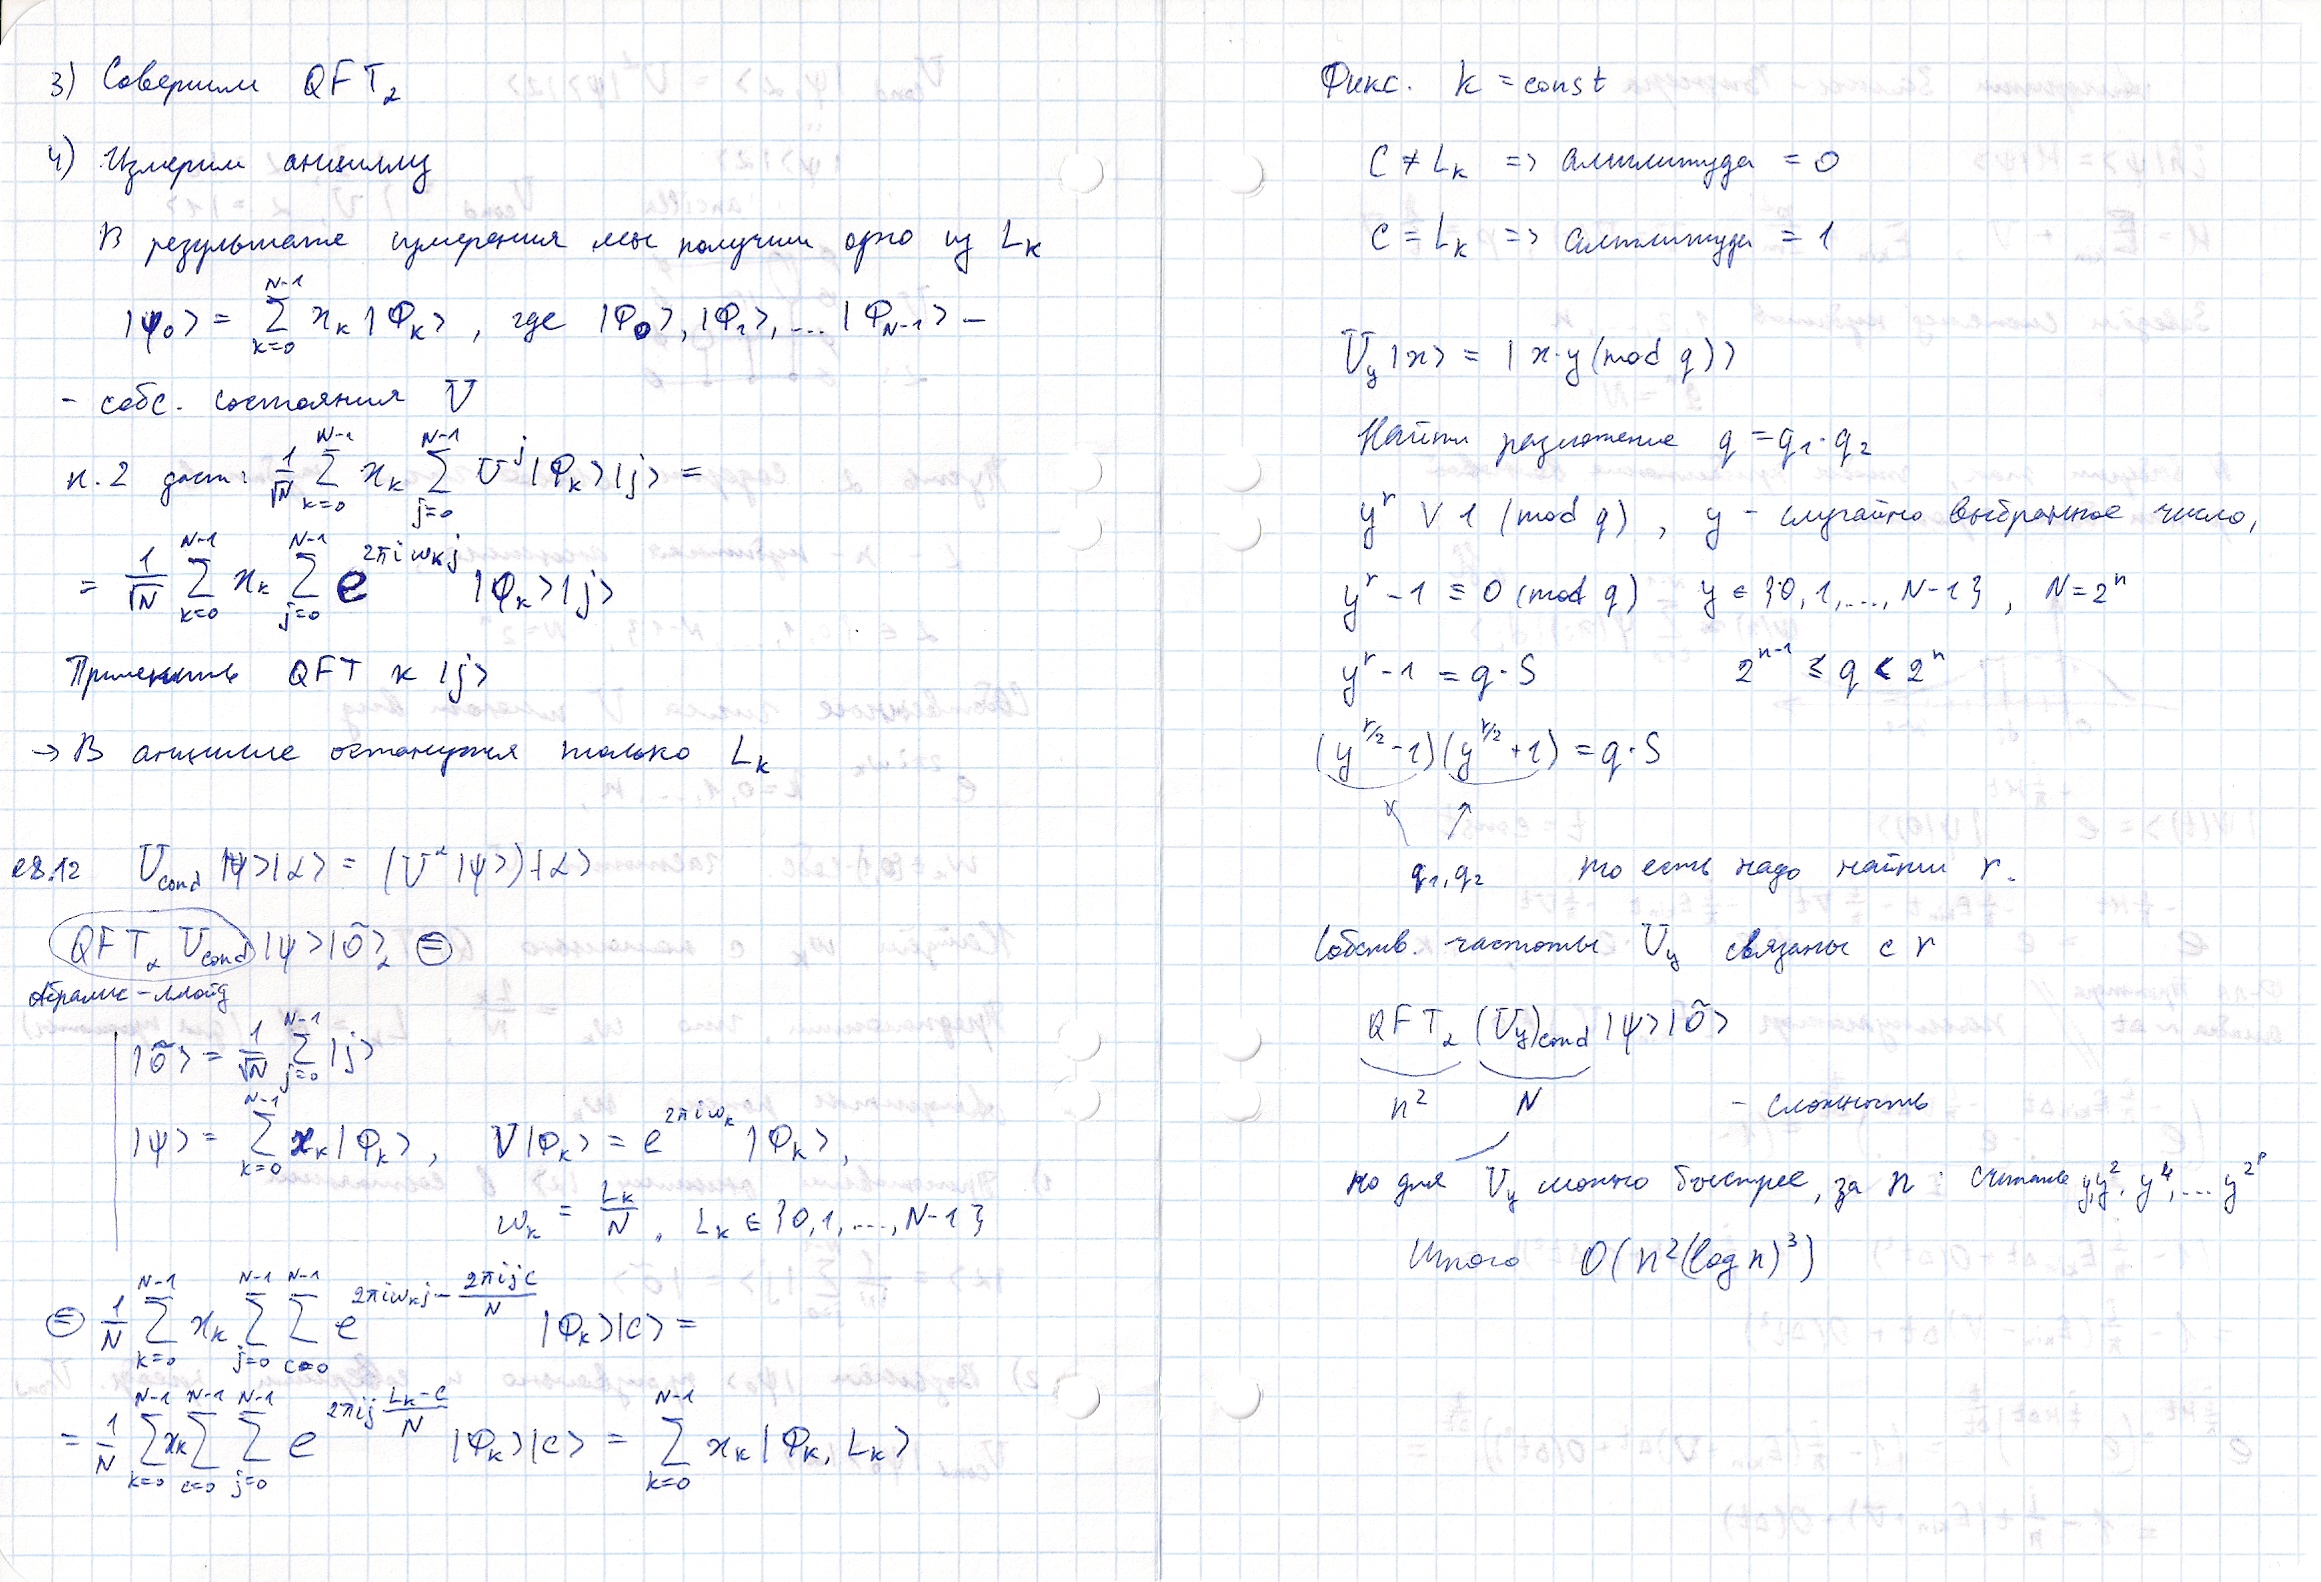 3) Совершим QFT₂
4) Измерим анциллу
В результате измерения мы получим одно из L_k
|ψ₀> = Σ_{k=0}^{N-1} x_k |Φ_k>, где |Φ₀>, |Φ₁>, ... |Φ_{N-1}> –
- собс. состояния U
п. 2 даст: 1/√N Σ_{k=0}^{N-1} x_k Σ_{j=0}^{N-1} U^j |Φ_k>|j> =
= 1/√N Σ_{k=0}^{N-1} x_k Σ_{j=0}^{N-1} e^{2πi w_k j} |Φ_k>|j>
Применить QFT к |j>
→ В анцилле останутся только L_k
28.12 U_cond |ψ>|α> = (U^α |ψ>)|α>
QFT_α U_cond |ψ>|õ>_α ⊜
Абрамс-Ллойд
|õ> = 1/√N Σ_{j=0}^{N-1} |j>
|ψ> = Σ_{k=0}^{N-1} x_k |Φ_k>, U|Φ_k> = e^{2πi w_k} |Φ_k>,
w_k = L_k/N, L_k ∈ {0, 1, ..., N-1}
⊜ 1/N Σ_{k=0}^{N-1} x_k Σ_{j=0}^{N-1} Σ_{c=0}^{N-1} e^{2πi w_k j - 2πijc/N} |Φ_k>|c> =
= 1/N Σ_{k=0}^{N-1} x_k Σ_{c=0}^{N-1} Σ_{j=0}^{N-1} e^{2πij (L_k-c)/N} |Φ_k>|c> = Σ_{k=0}^{N-1} x_k |Φ_k, L_k>
Фикс. k = const
C ≠ L_k => амплитуда = 0
C = L_k => амплитуда = 1
U_y |x> = |x·y (mod q)>
Найти разложение q = q₁·q₂
y^r ∨ 1 (mod q), y - случайно выбранное число,
y^r - 1 ≡ 0 (mod q) y ∈ {0, 1, ..., N-1}, N = 2^n
y^r - 1 = q·S 2^{n-1} ≤ q < 2^n
(y^{r/2} - 1)(y^{r/2} + 1) = q·S
q₁, q₂ то есть надо найти r.
Собств. частоты U_y связаны с r
QFT_α (U_y)_cond |ψ>|õ>
n² N - сложность
но для U_y можно быстрее, за n: считать y, y², y⁴, ... y^{2^p}
Итого O(n²(log n)³)